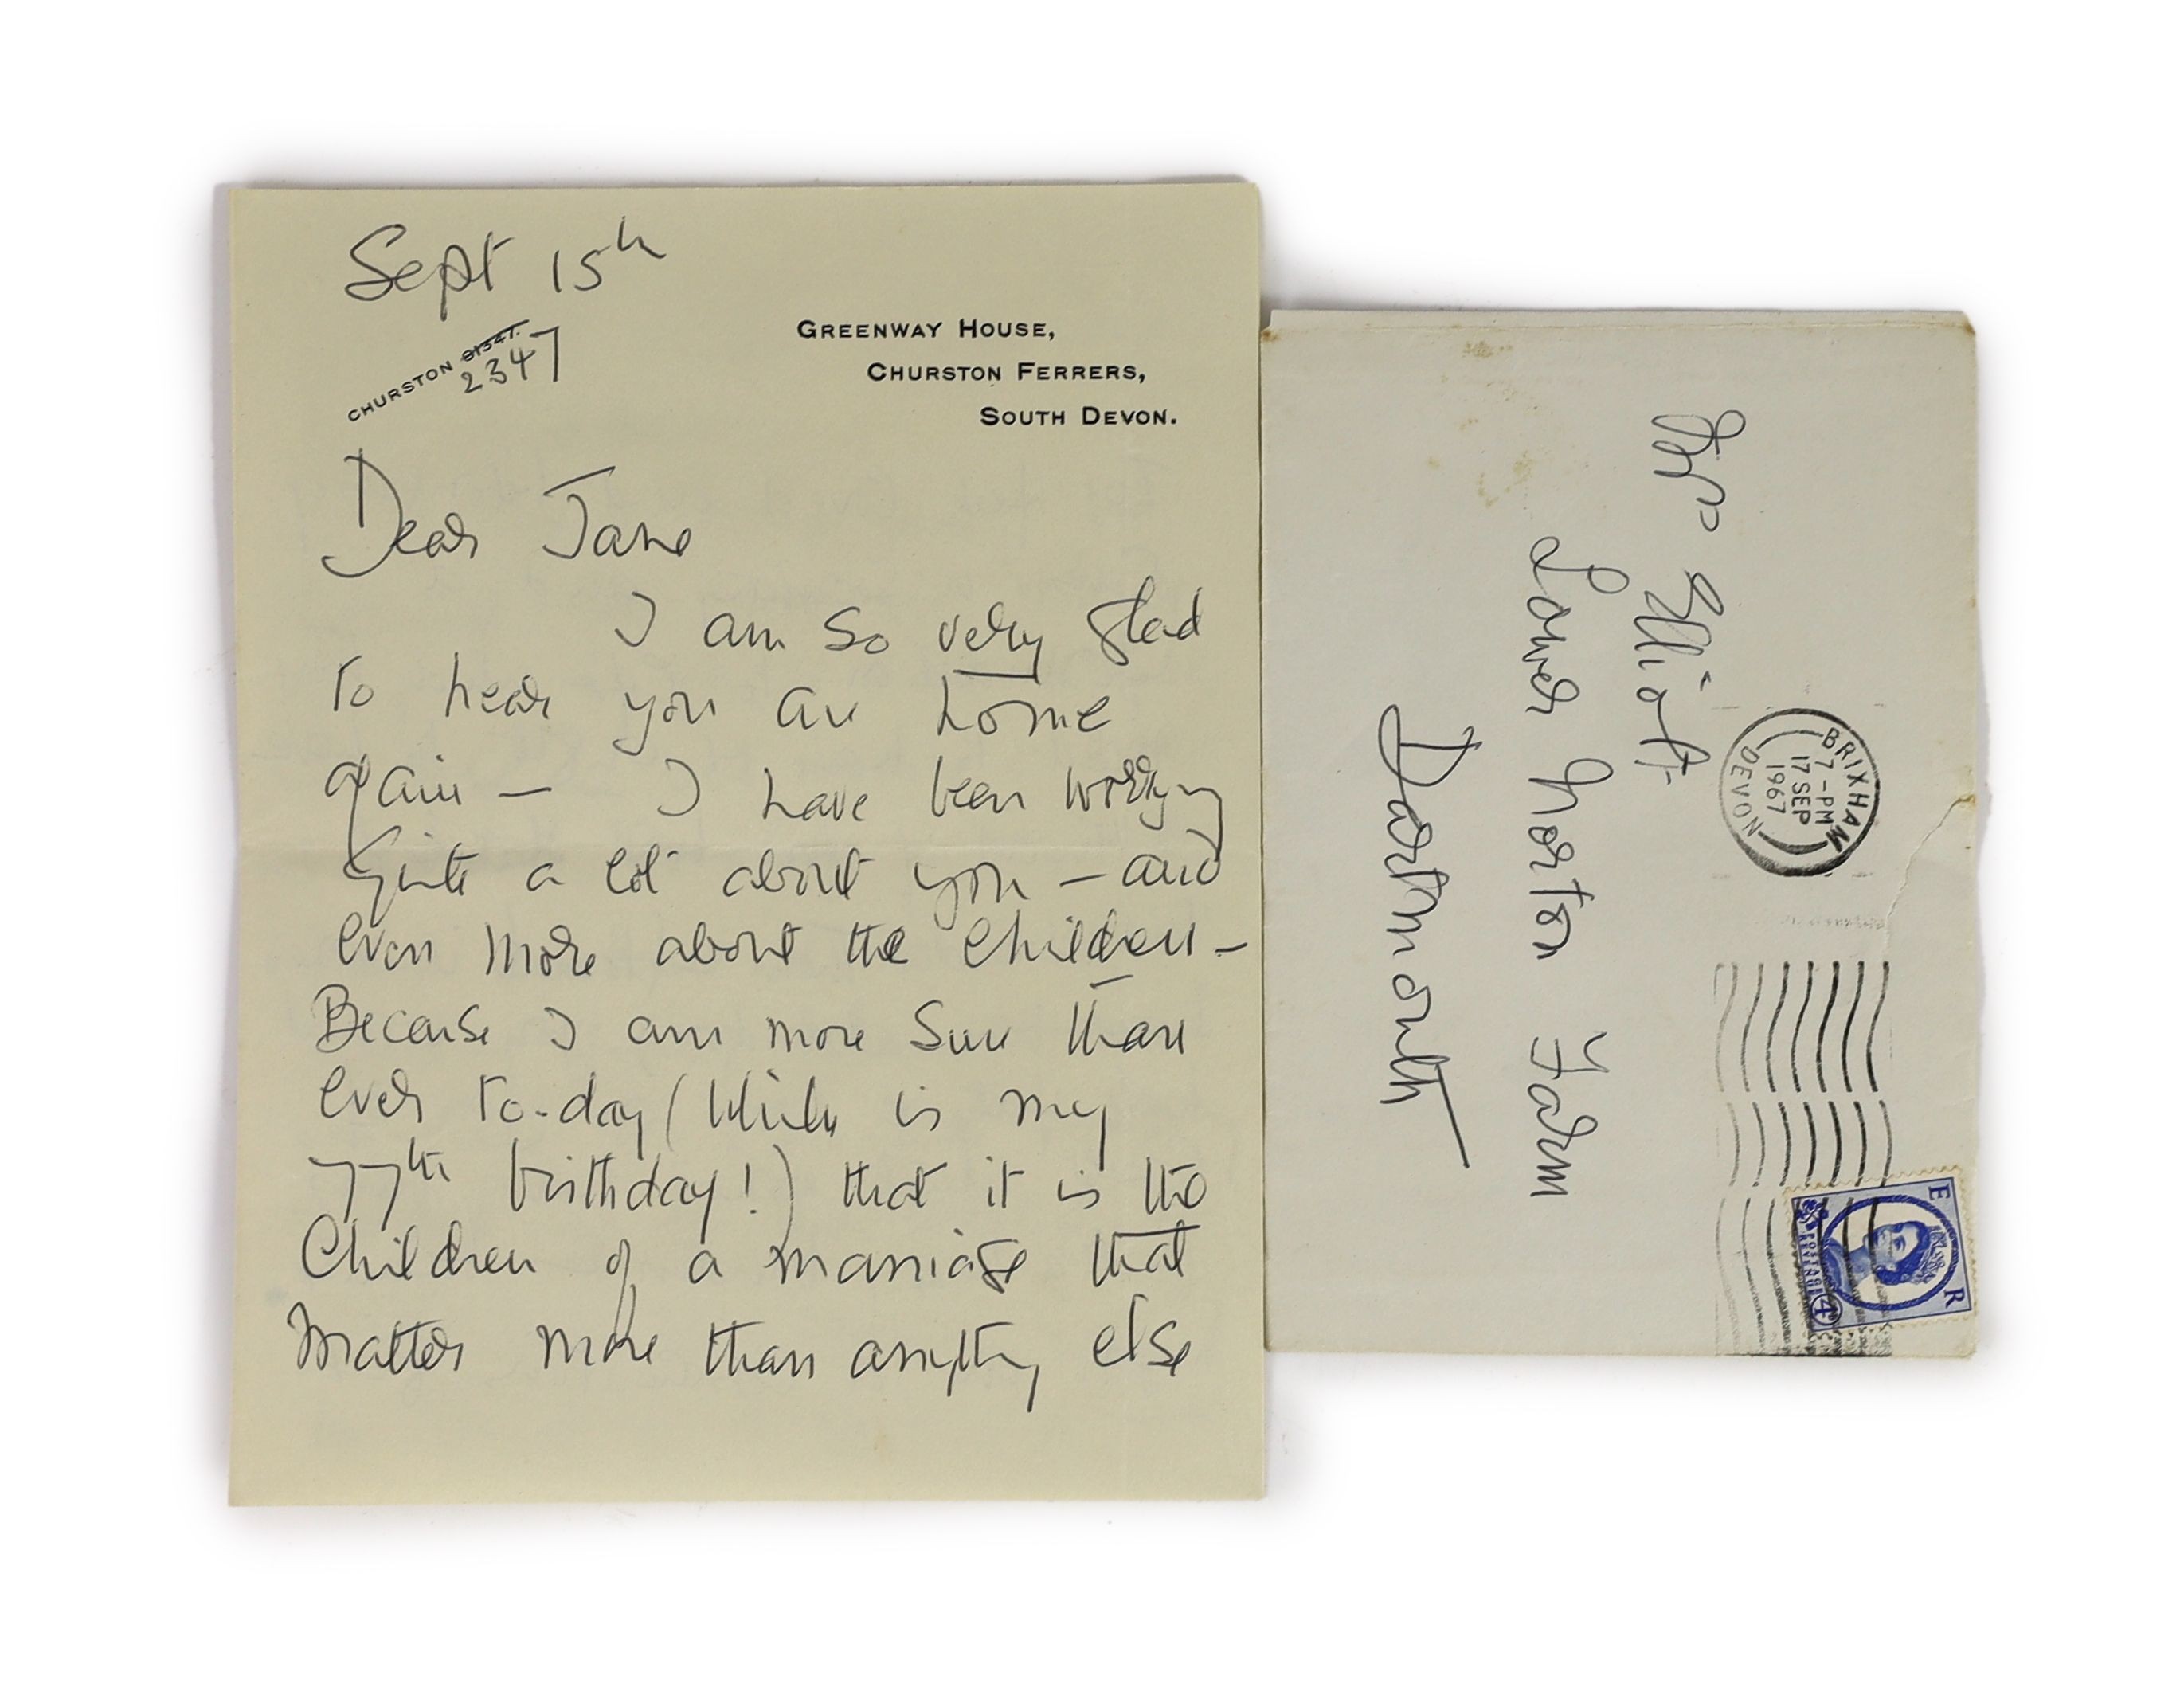 Sept 15th
CHURSTON 81347.
2347
GREENWAY HOUSE,
CHURSTON FERRERS,
SOUTH DEVON.
Dear Jane
I am so very glad
to hear you are home
again — I have been worrying
quite a lot about you — and
even more about the children —
Because I am more sure than
ever to-day (which is my
77th birthday!) that it is the
Children of a marriage that
matter more than anything else
Mrs Elliott
Lower Norton Farm
Dartmouth
BRIXHAM
7-PM
17 SEP
1967
DEVON
E R
POSTAGE
REVENUE
4D